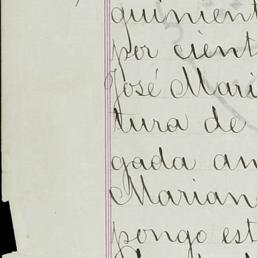 quinient
por cient
José Mari
tura de
gada an
Marian
pongo est